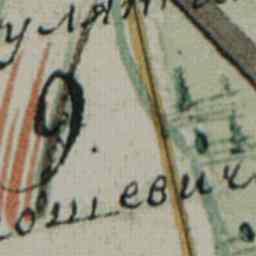 улян
9.
ошевич